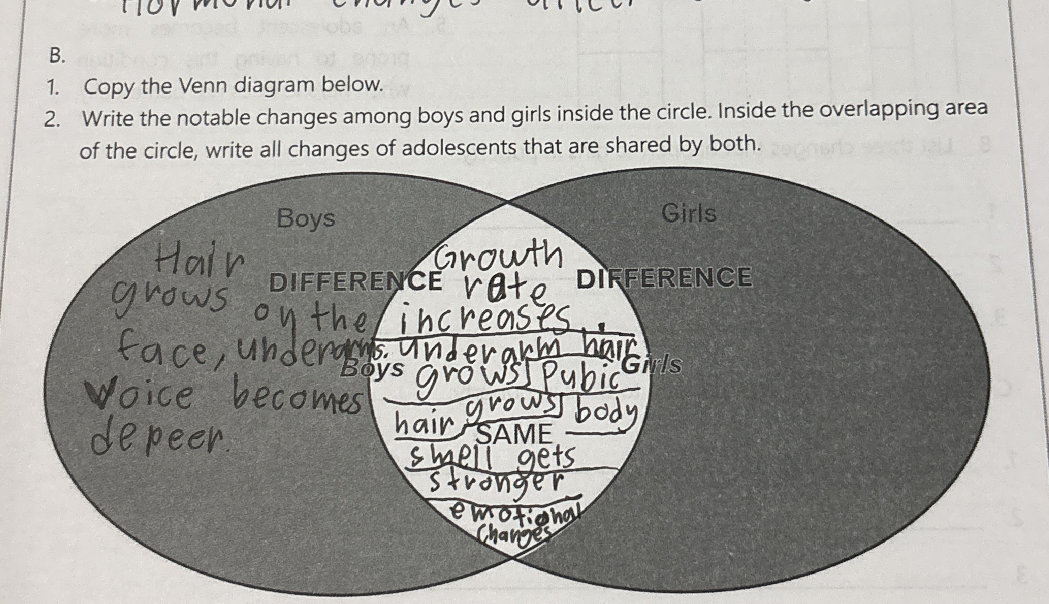 Hormonal changes
B.
1. Copy the Venn diagram below.
2. Write the notable changes among boys and girls inside the circle. Inside the overlapping area
of the circle, write all changes of adolescents that are shared by both.
Boys
Hair
grows on the
face, underarms.
Voice becomes
depeer.
DIFFERENCE
Boys
Growth
rate
increases.
Underarm hair
grows, Pubic
hair grows, body
SAME
smell gets
stronger
emotional
Changes
Girls
DIFFERENCE
Girls